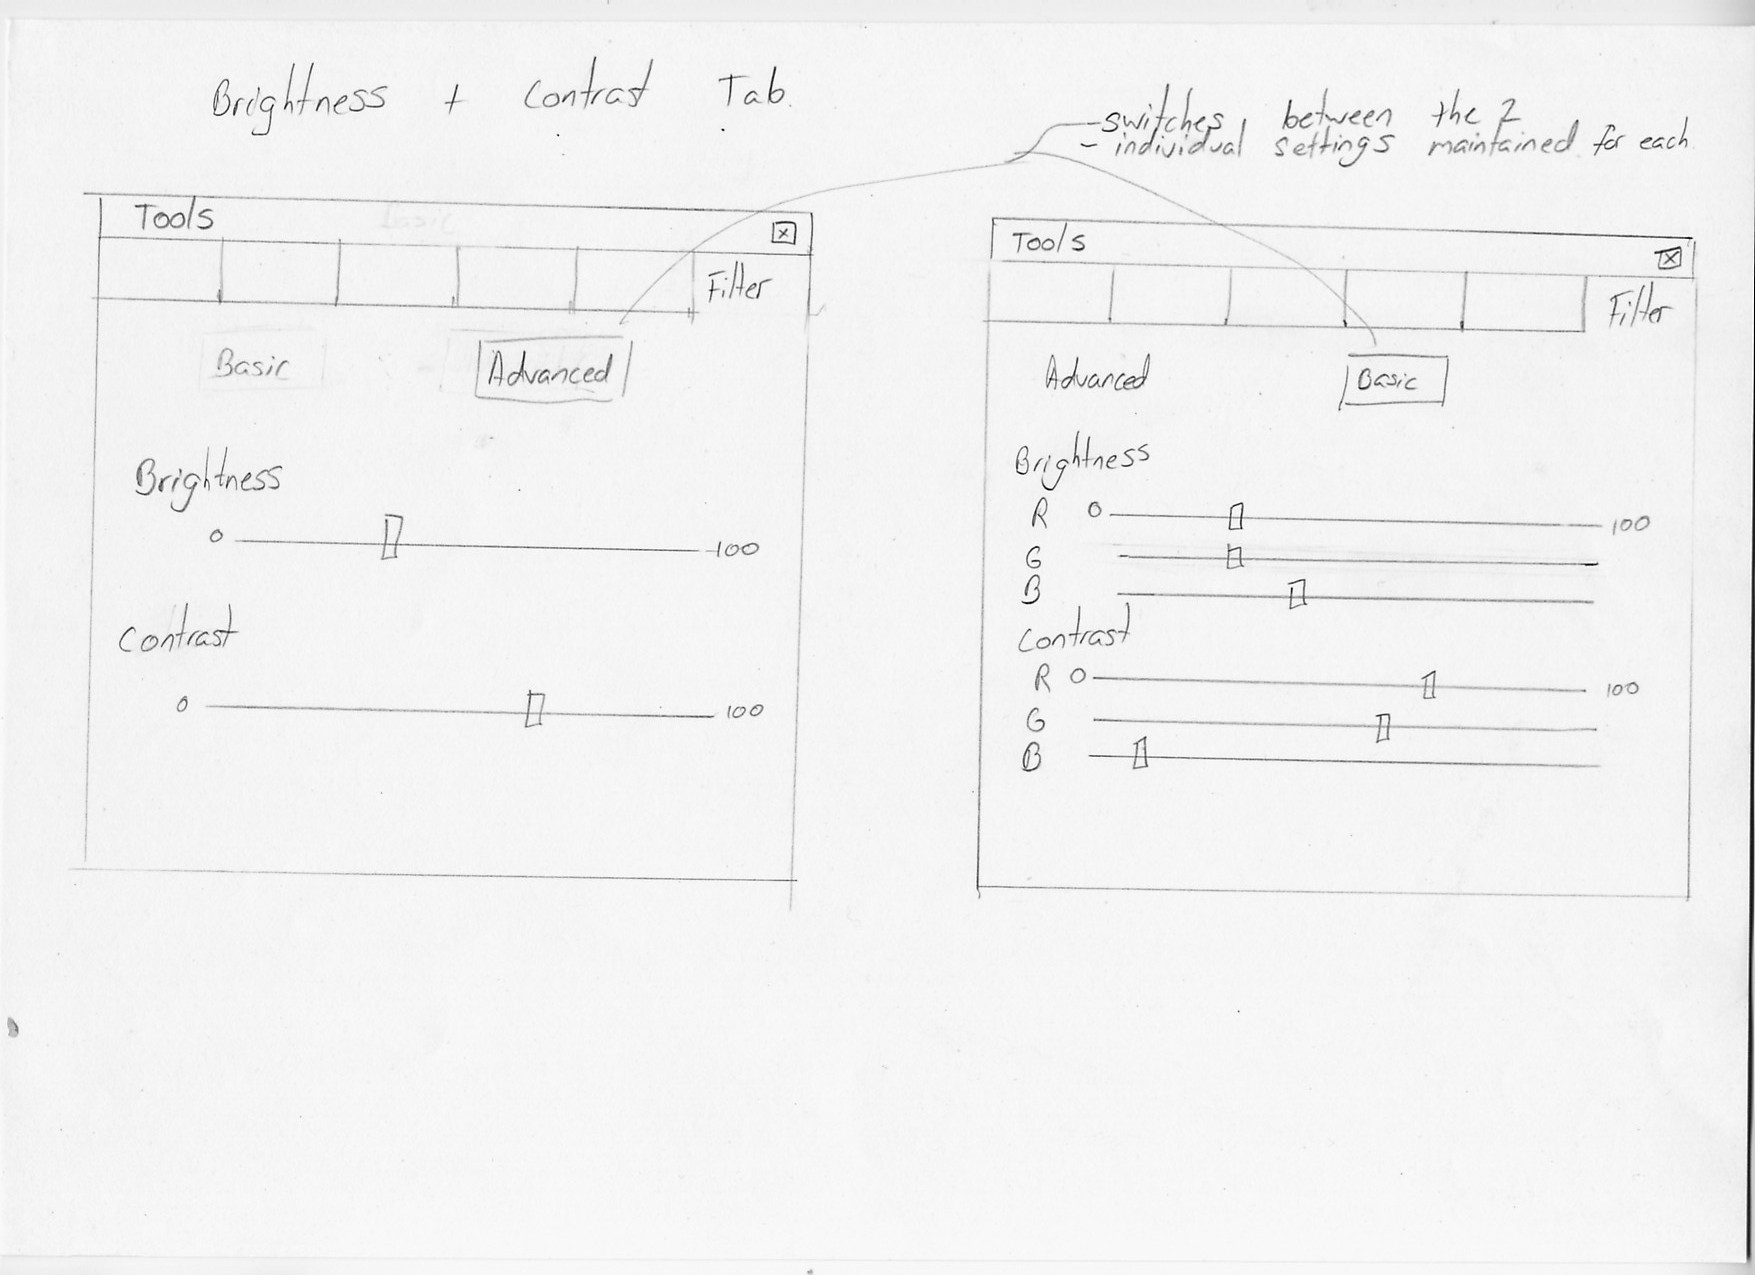 Brightness + Contrast Tab.
-switches between the 2
- individual settings maintained for each
Tools
x
Filter
Basic
Advanced
Brightness
0
100
Contrast
0
100
Tools
x
Filter
Advanced
Basic
Brightness
R 0 100
G
B
Contrast
R 0 100
G
B